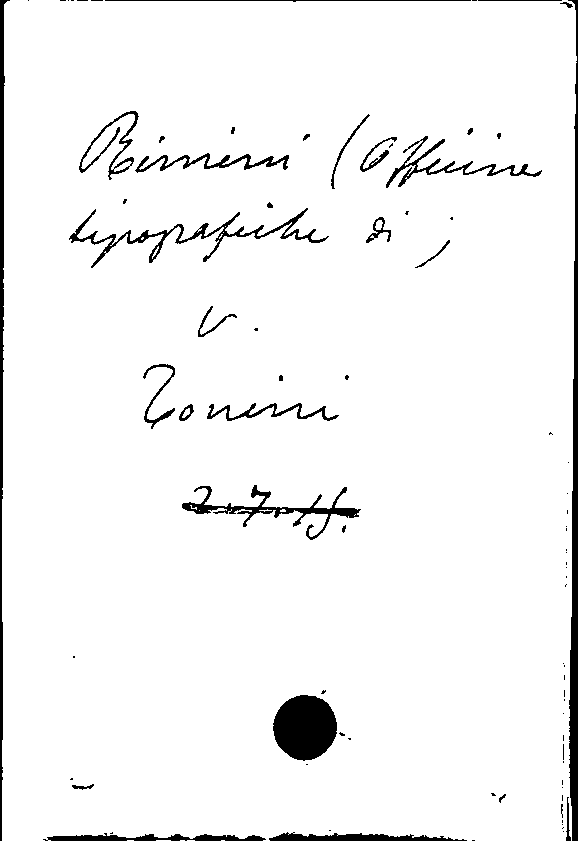 Rimini (Officine
tipografiche di;
v.
Tonini
2.7.15.